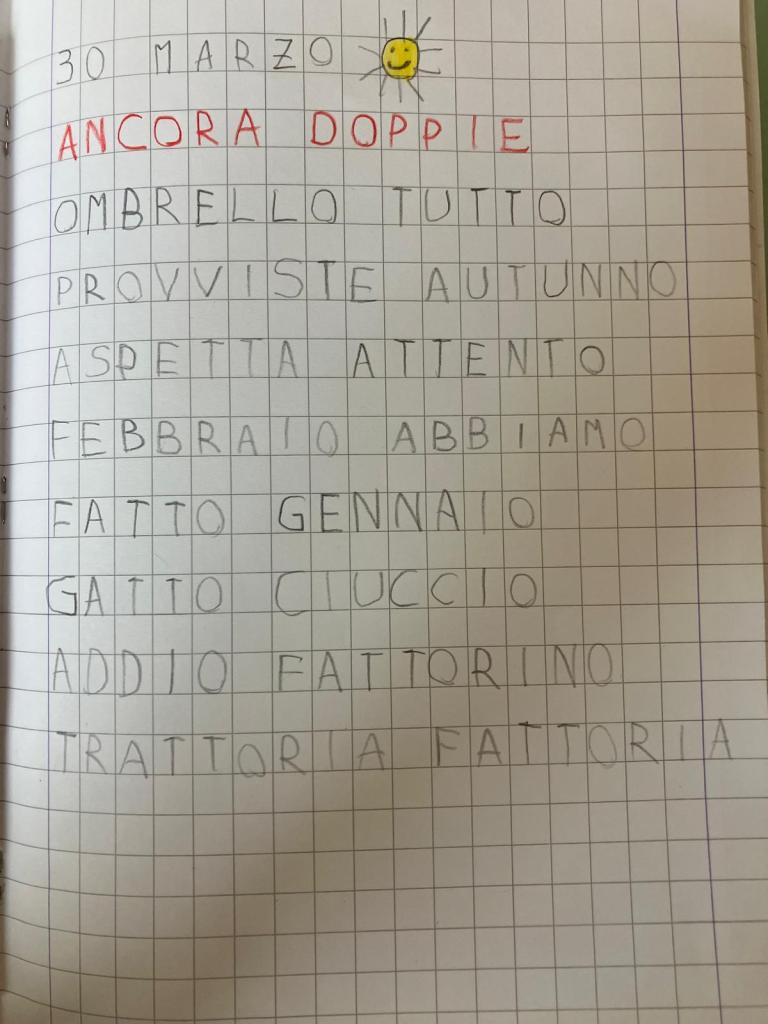 30 MARZO
ANCORA DOPPIE
OMBRELLO TUTTO
PROVVISTE AUTUNNO
ASPETTA ATTENTO
FEBBRAIO ABBIAMO
FATTO GENNAIO
GATTO CIUCCIO
ADDIO FATTORINO
TRATTORIA FATTORIA